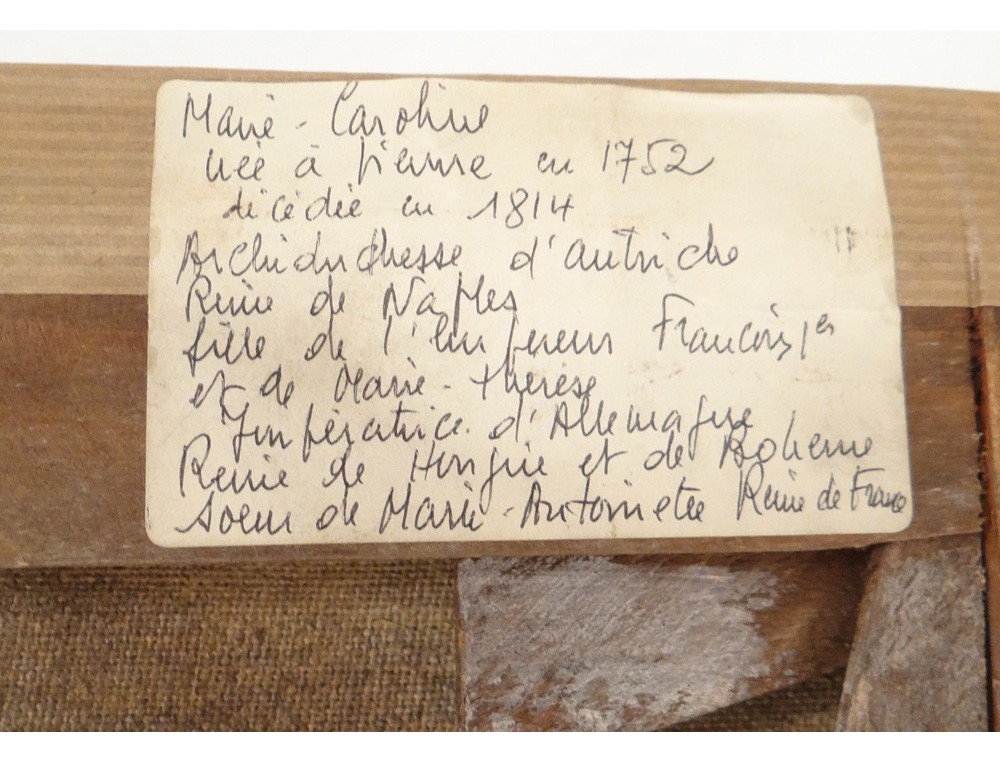 Marie-Caroline
née à Vienne en 1752
décédée en 1814
Archiduchesse d'autriche
Reine de Naples
fille de l'Empereur François 1er
et de Marie-Thérèse
Impératrice d'Allemagne
Reine de Hongrie et de Boheme
soeur de Marie-Antoinette Reine de France